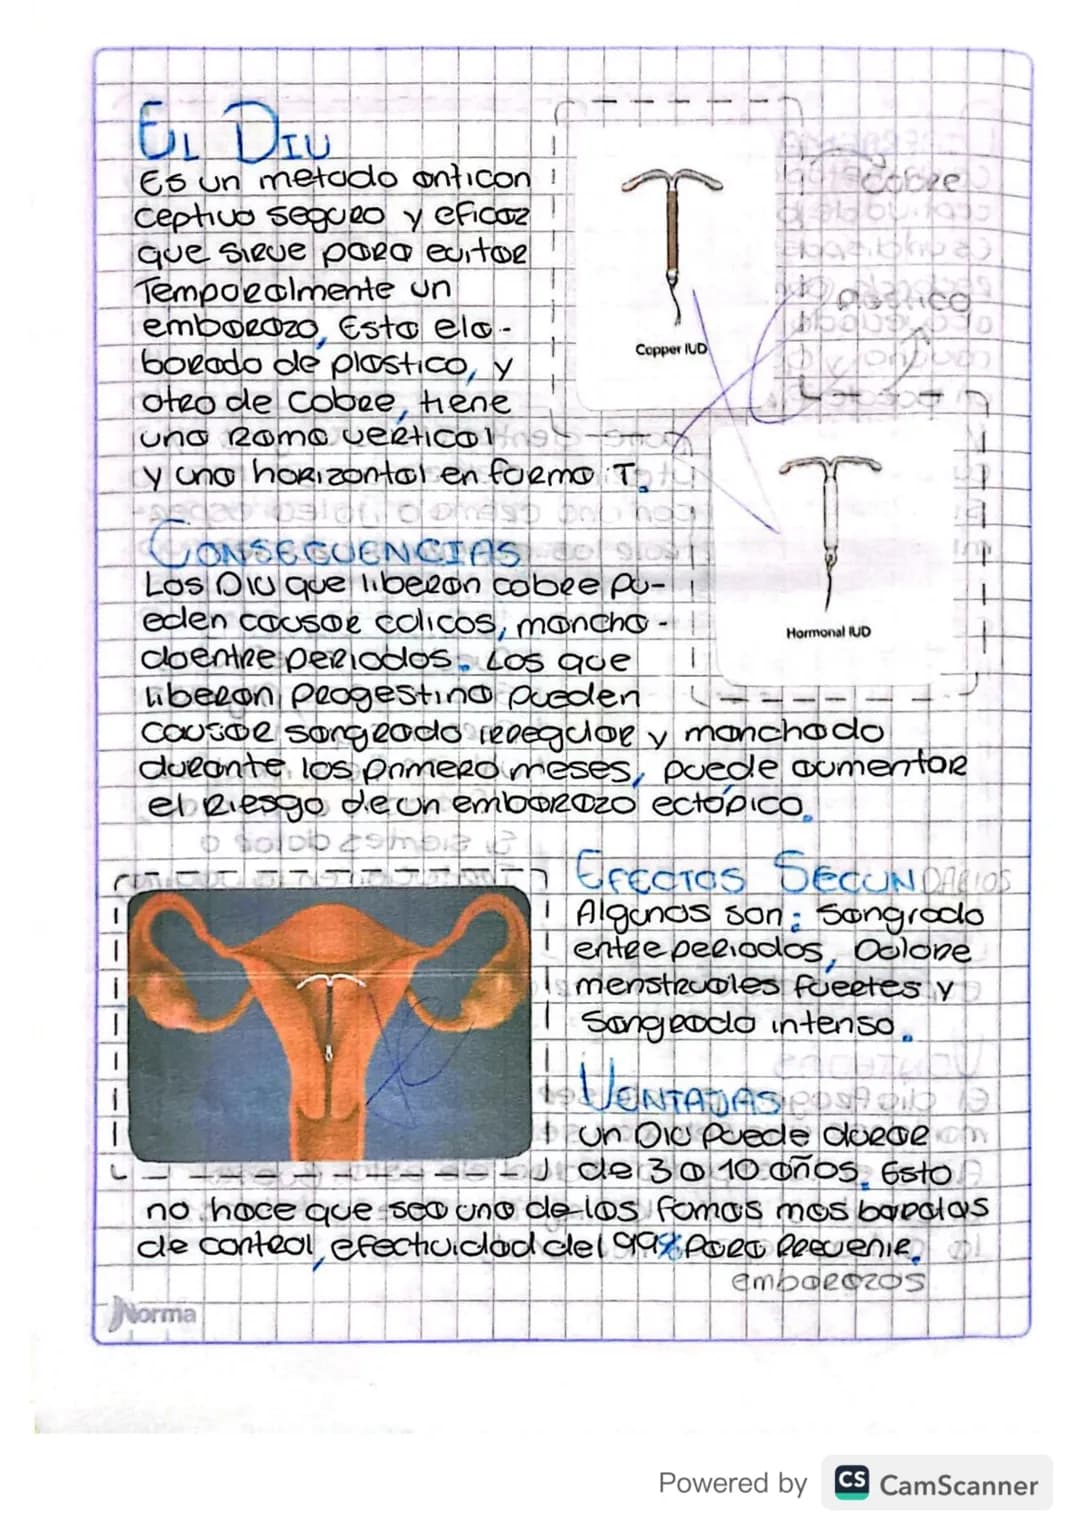 EL DIU
Es un metodo anticon
ceptivo seguro y eficaz
que sirve para evitar
Temporalmente un
embarazo, Esta ela-
borado de plastico, y
otro de cobre, tiene
una rama vertical
y una horizontal en forma T.
Copper IUD
cobre
plastico
Hormonal IUD
CONSEGUENCIAS
Los DIU que liberan cobre pu-
eden causar colicos, mancha-
do entre periodos. Los que
liberan progestina pueden
causar sangrado irregular y manchado
durante los primero meses, puede aumentar
el riesgo de un embarazo ectópico.
EFECTOS SECUNDARIOS
Algunos son: Sangrado
entre periodos, Dolore
menstruales fuertes y
Sangrado intenso.
VENTAJAS
un DIU Puede durar
de 3 a 10 años. Esto
no hace que sea una de las formas mas baratas
de control, efectividad del 99% Para Prevenir.
embarazos
Norma
Powered by CS CamScanner